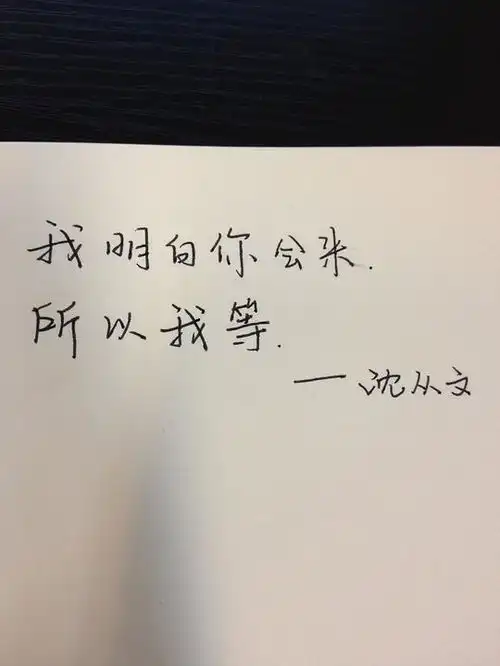 我明白你会来.
所以我等.
— 沈从文